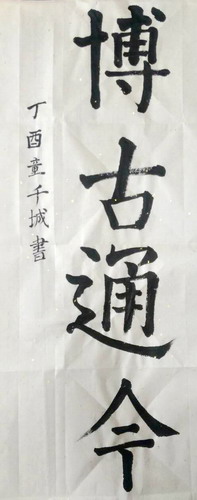 博古通今
丁酉童千城書